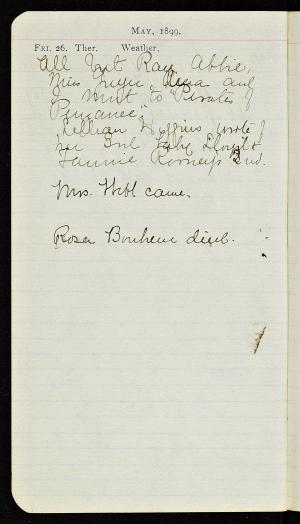 May, 1899.
Fri. 26. Ther. Weather.
All but Ray, Abbie,
Miss and
I went to "Pirates of
Penzance".
Lillian Higgins wrote of
Lloyd &
Fannie
Mrs. Webb came.
Rosa Bonheur died.